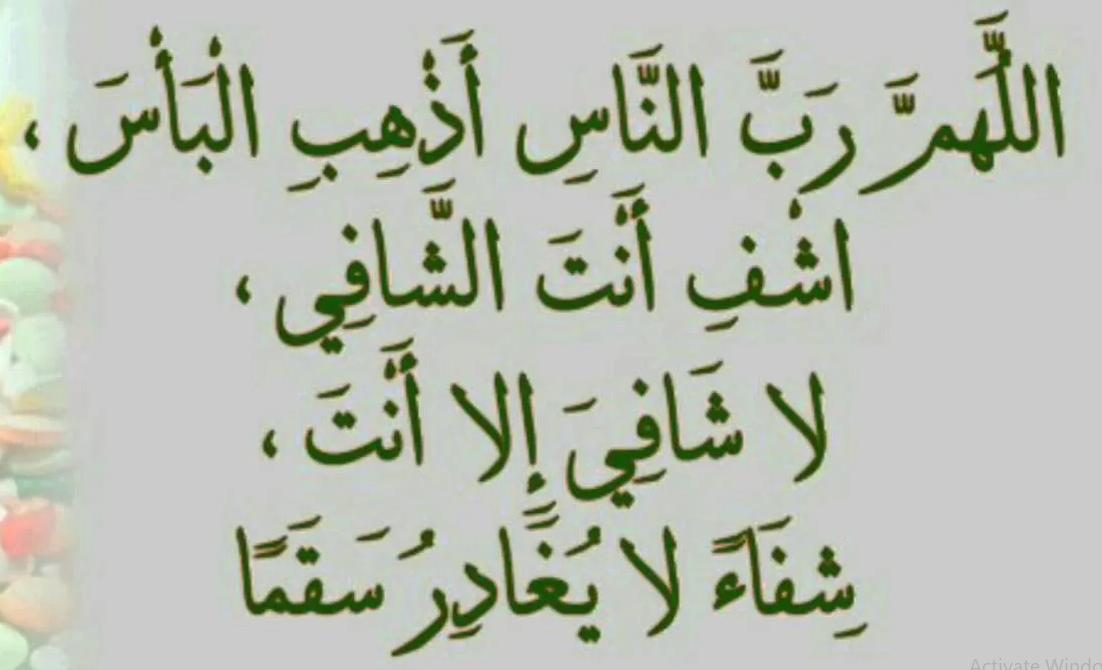 اللَّهُمَّ رَبَّ النَّاسِ أَذْهِبِ الْبَأْسَ ،
اشْفِ أَنْتَ الشَّافِي ،
لا شَافِيَ إِلا أَنْتَ ،
شِفَاءً لا يُغَادِرُ سَقَمًا
Activate Windo